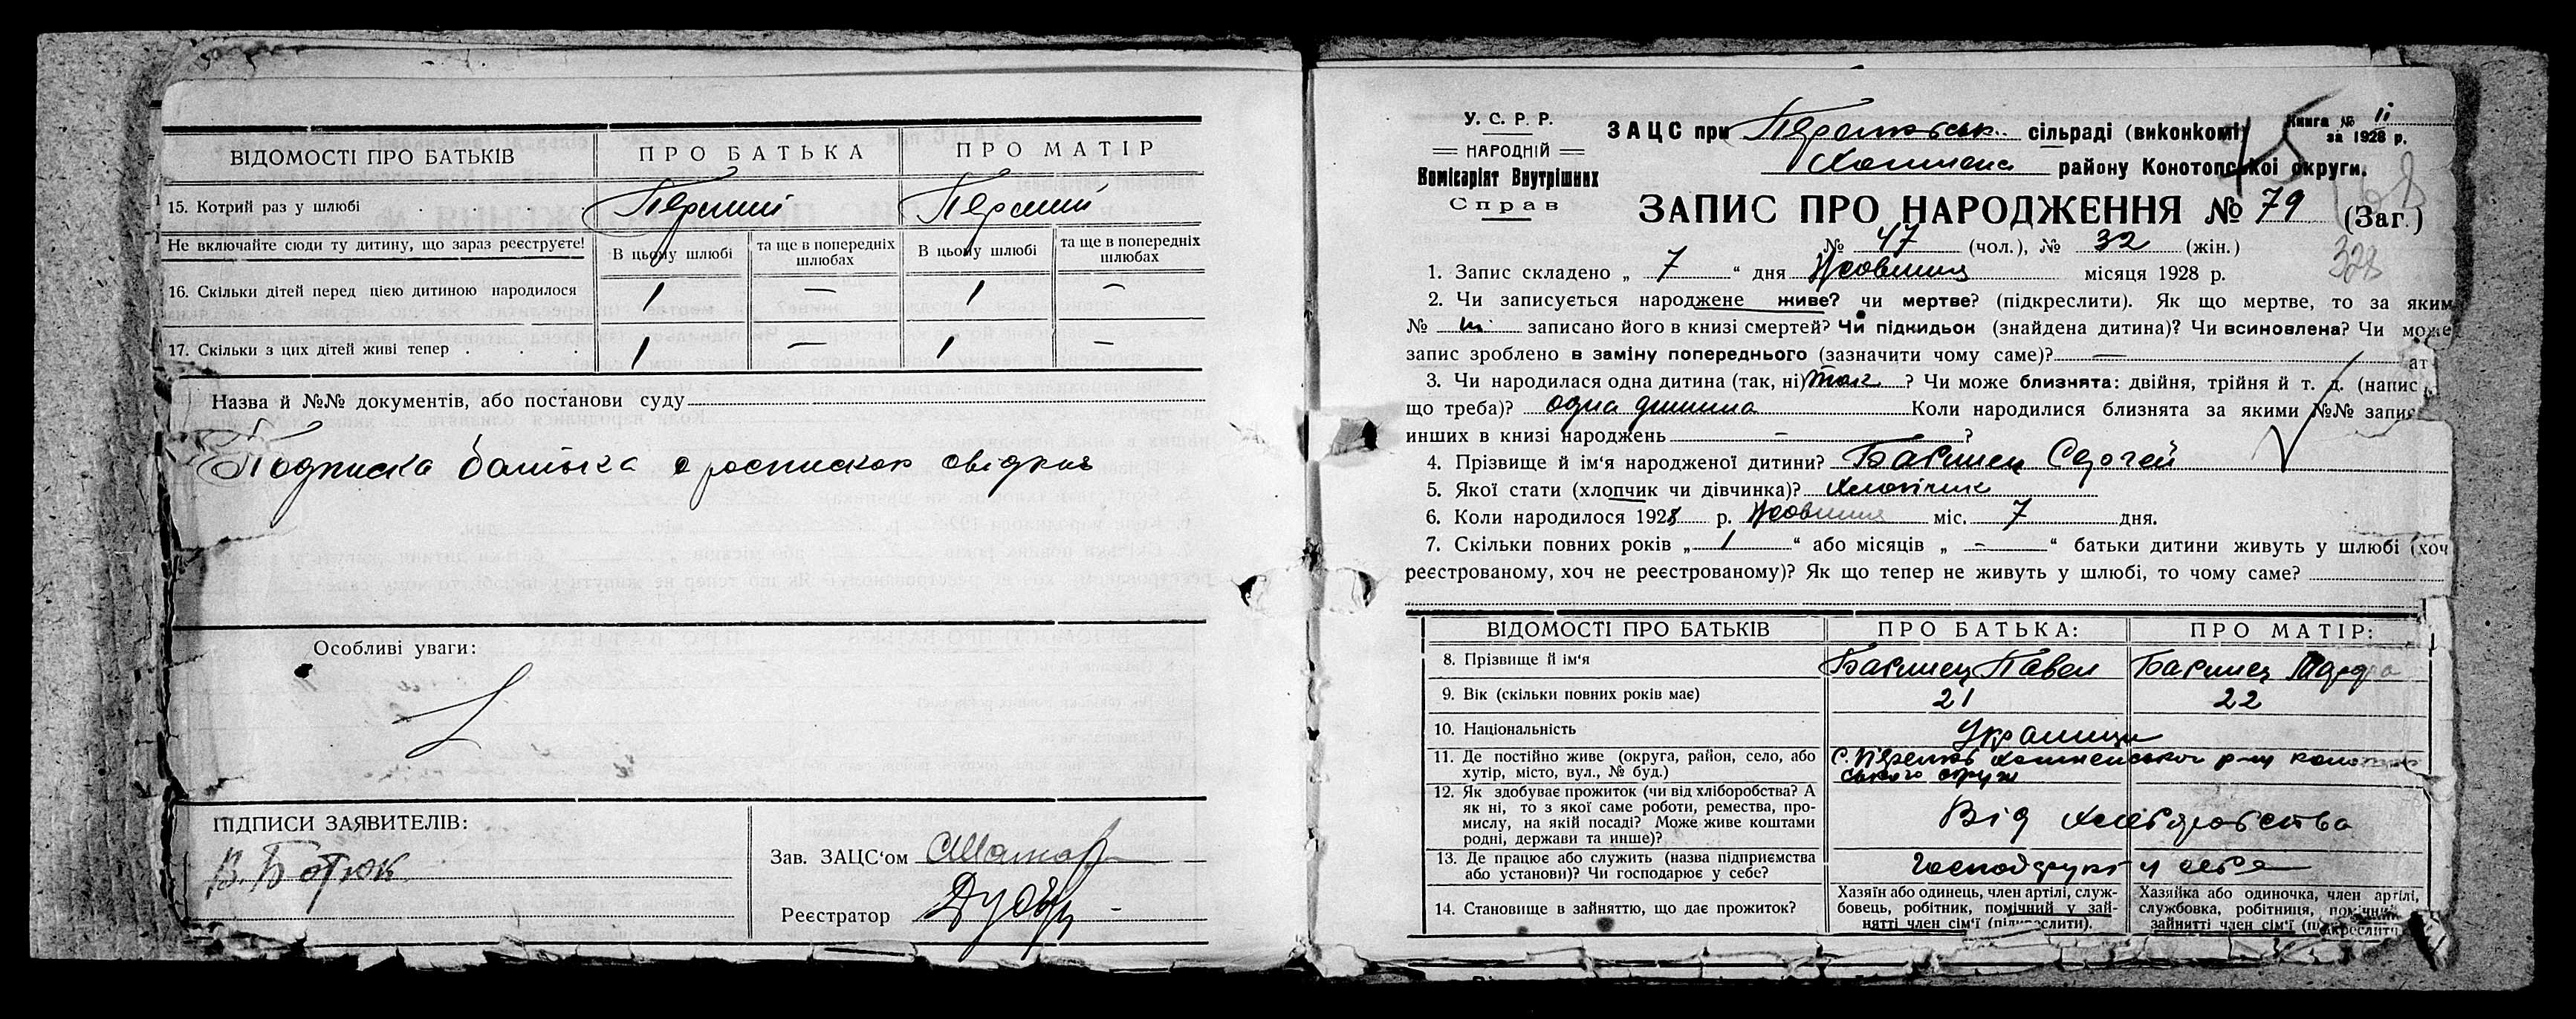 ВІДОМОСТІ ПРО БАТЬКІВ ПРО БАТЬКА ПРО МАТІР
15. Котрий раз у шлюбі Перший Перший
Не включайте сюди ту дитину, що зараз реєструєте! В цьому шлюбі та ще в попередніх шлюбах В цьому шлюбі та ще в попередніх шлюбах
16. Скільки дітей перед цією дитиною народилося 1 — 1 —
17. Скільки з цих дітей живі тепер 1 — 1 —
Назва й №№ документів, або постанови суду
Подписка батька с роспискою свідків
Особливі уваги:
ПІДПИСИ ЗАЯВИТЕЛІВ:
Зав. ЗАЦС'ом
Реєстратор
У. С. Р. Р.
НАРОДНІЙ
Комісаріят Внутрішних
Справ
ЗАЦС при сільраді (виконкомі) Книга № 11
за 1928 р.
району Конотопської округи.
ЗАПИС ПРО НАРОДЖЕННЯ № 79 (Заг.)
№ 47 (чол.), № 32 (жін.)
328
1. Запис складено „ 7 “ дня Жовтня місяця 1928 р.
2. Чи записується народжене живе? чи мертве? (підкреслити). Як що мертве, то за яким
№ записано його в книзі смертей? Чи підкидьок (знайдена дитина)? Чи всиновлена? Чи може
запис зроблено в заміну попереднього (зазначити чому саме)? —
3. Чи народилася одна дитина (так, ні) так ? Чи може близнята: двійня, трійня й т. д. (напис
що треба)? одна дитина Коли народилися близнята за якими №№ запис
инших в книзі народжень — ?
4. Прізвище й ім'я народженої дитини? Бакшеец Сергей
5. Якої стати (хлопчик чи дівчинка)? Хлопчик
6. Коли народилось 1928 р. Жовтня міс. 7 дня.
7. Скільки повних років „ 1 “ або місяців „ — “ батьки дитини живуть у шлюбі (хоч
реєстрованому, хоч не реєстрованому)? Як що тепер не живуть у шлюбі, то чому саме?
ВІДОМОСТІ ПРО БАТЬКІВ ПРО БАТЬКА: ПРО МАТІР:
8. Прізвище й ім'я Павел
9. Вік (скільки повних років має) 21 22
10. Національність Українці
11. Де постійно живе (округа, район, село, або
хутір, місто, вул., № буд.)
12. Як здобуває прожиток (чи від хліборобства? А
як ні, то з якої саме роботи, ремества, про-
мислу, на якій посаді? Може живе коштами
родні, держави та инше)? Від хліборобства
13. Де працює або служить (назва підприємства
або установи)? Чи господарює у себе? Господарують у себе
14. Становище в зайняттю, що дає прожиток?
Хазяїн або одинець, член артілі, служ-
бовець, робітник, помічний у зай-
нятті член сім'ї (підкреслити).
Хазяйка або одиночка, член артілі,
службовка, робітниця, помічний
зайнятті член сім'ї (підкреслити